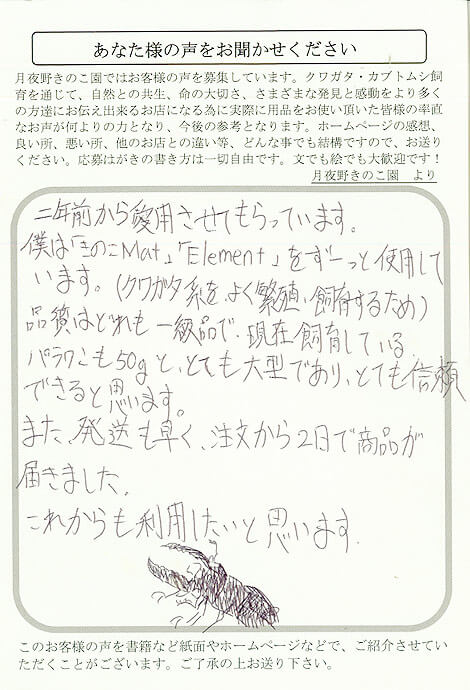 あなた様の声をお聞かせください
月夜野きのこ園ではお客様の声を募集しています。クワガタ・カブトムシ飼
育を通じて、自然との共生、命の大切さ、さまざまな発見と感動をより多く
の方達にお伝え出来るお店になる為に実際に用品をお使い頂いた皆様の率直
なお声が何よりの力となり、今後の参考となります。ホームページの感想、
良い所、悪い所、他のお店との違い等、どんな事でも結構ですので、お送り
ください。応募はがきの書き方は一切自由です。文でも絵でも大歓迎です！
月夜野きのこ園　より
二年前から愛用させてもらっています。
僕は「きのこMat」「Element」をずーっと使用して
います。(クワガタ系をよく繁殖、飼育するため)
品質はどれも一級品で、現在飼育している
パラワンも50gと、とても大型であり、とても信頼
できると思います。
また、発送も早く、注文から2日で商品が
届きました。
これからも利用したいと思います。
このお客様の声を書籍など紙面やホームページなどで、ご紹介させてい
ただくことがございます。ご了承の上お送り下さい。